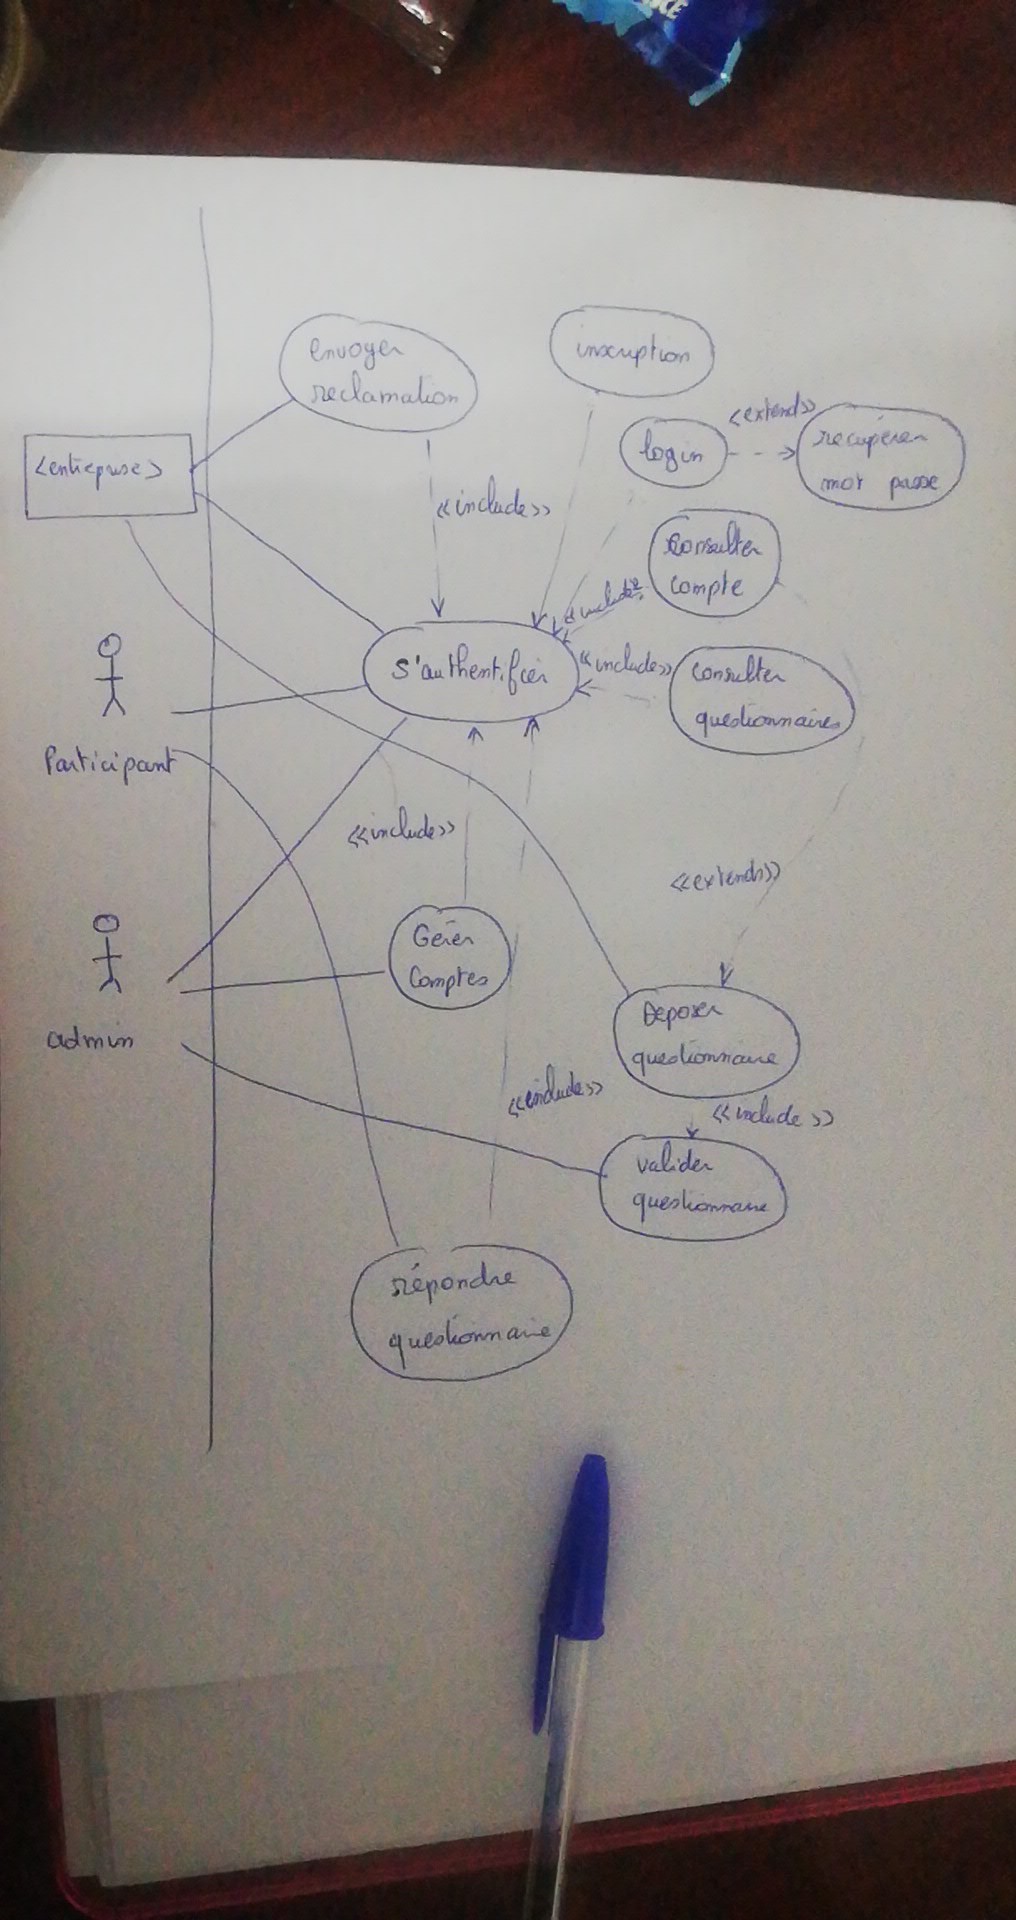 NCE
envoyer
reclamation
inscription
login
<<extend>>
recupérer
mot passe
<entreprise>
<<include>>
consulter
compte
<<include>>
s'authentifier
<<include>>
consulter
questionnaires
Participant
<<include>>
<<extends>>
Gérer
Comptes
admin
Deposer
questionnaire
<<include>>
<<include>>
valider
questionnaire
répondre
questionnaire